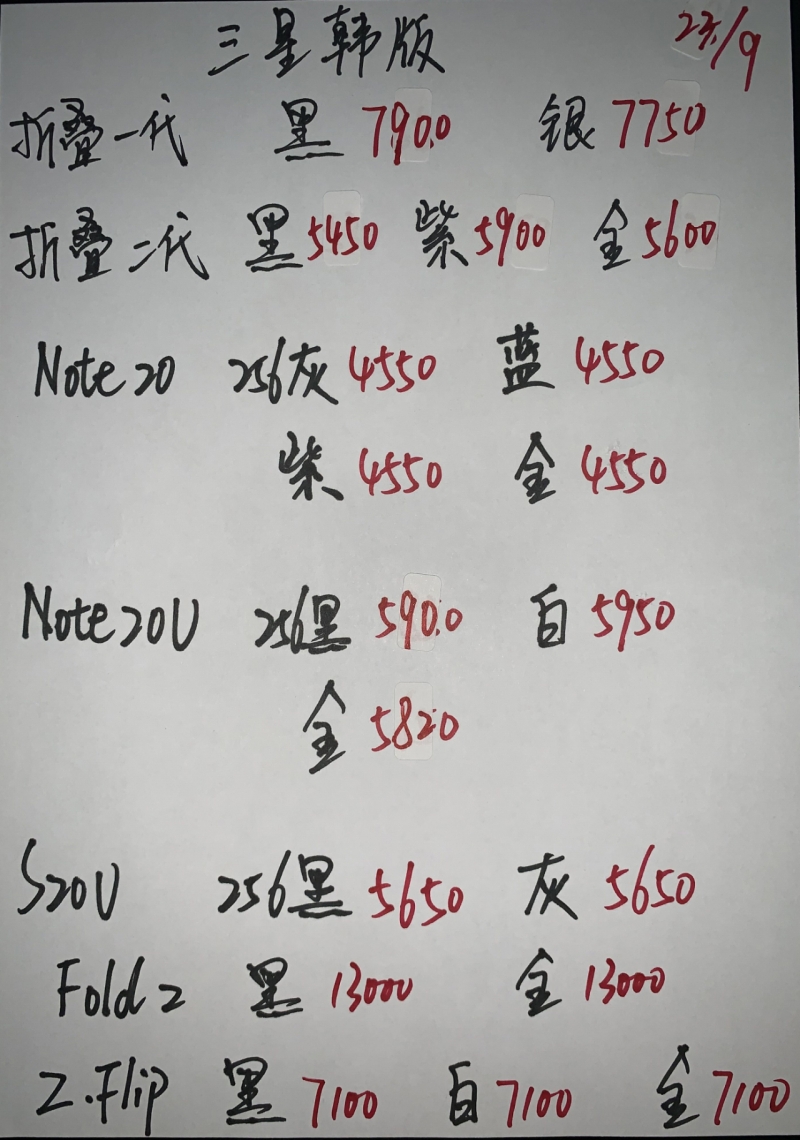 三星韩版 23/9
折叠一代 黑 7900 银 7750
折叠二代 黑 5450 紫 5900 金 5600
Note20 256灰 4550 蓝 4550
紫 4550 金 4550
Note20U 256黑 5900 白 5950
金 5820
S20U 256黑 5650 灰 5650
Fold2 黑 13000 金 13000
Z.Flip 黑 7100 白 7100 金 7100